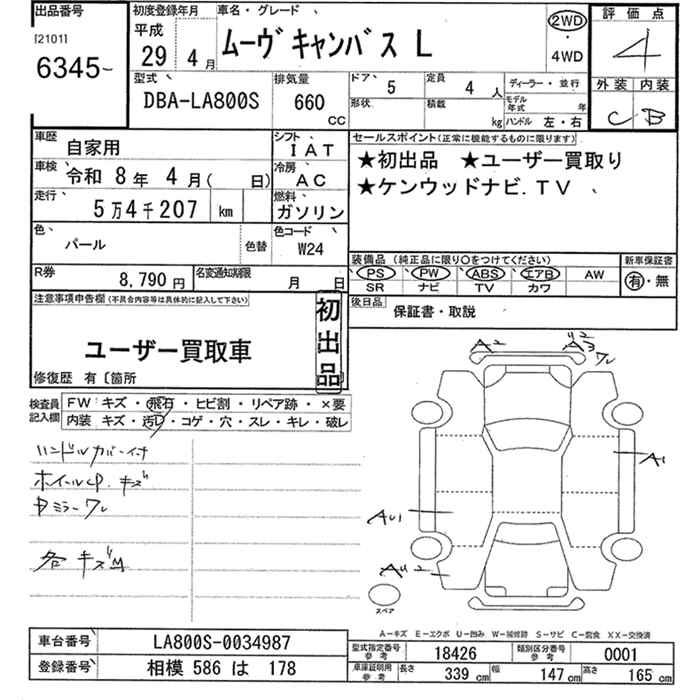 出品番号
[2101]
6345
初度登録年月
平成
29年 4月
車名・グレード
ムーヴキャンバス L
2WD
・
4WD
評価点
4
外装 内装
C B
型式
DBA-LA800S
排気量
660
CC
ドア 5
形状
定員 4人
積載 kg
ディーラー・並行
モデル年式 年
ハンドル 左・右
車歴 自家用
シフト IAT
車検 令和 8年 4月( 日)
冷房 AC
走行 5万4千207 km
燃料 ガソリン
色 パール
色替
色コード W24
R券 8,790円
名変通知期限 月 日
セールスポイント(正常に機能するものに限ります)
★初出品 ★ユーザー買取り
★ケンウッドナビ.TV
装備品 (純正品に限り○をつけてください)
PS PW ABS エアB AW
SR ナビ TV カワ
新車保証書
有・無
後日品
保証書・取説
注意事項申告欄(不具合内容等は具体的に記入して下さい)
ユーザー買取車
初出品
修復歴 有〔箇所
検査員記入欄
FW キズ・飛石・ヒビ割・リペア跡・×要
内装 キズ・汚れ・コゲ・穴・スレ・キレ・破レ
ハンドルカバー付
ホイールCP. キズ
Dミラーワレ
各キズM
A2
A3 ワレ
A1
AU1
AU2
スペア
A-キズ E-エクボ U-凹み W-補修跡 S-サビ C-腐食 XX-交換済
車台番号 LA800S-0034987
登録番号 相模 586 は 178
型式指定番号 参考 18426
類別区分番号 参考 0001
車庫証明用 参考 長さ 339cm 幅 147cm 高さ 165cm